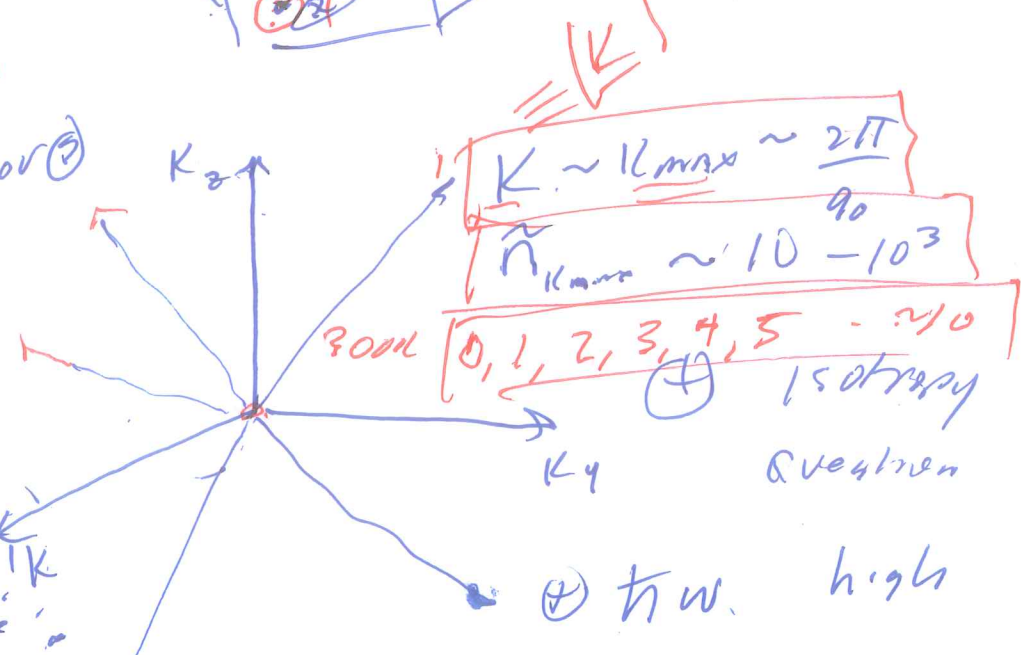 or ③
K_z
K ~ K_max ~ 2π/q_0
ñ_Kmax ~ 10 – 10³
300K
0, 1, 2, 3, 4, 5 .. ~10
⊕ Isotropy
K_y
Question
K
⊕ ħω. high